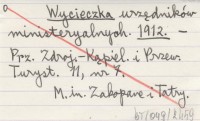 Wycieczka urzędników
ministeryalnych 1912. —
Prz. Zdroj.-Kąpiel. i Przew.
Turyst. VI, nr 7.
M. in. Zakopane i Tatry.